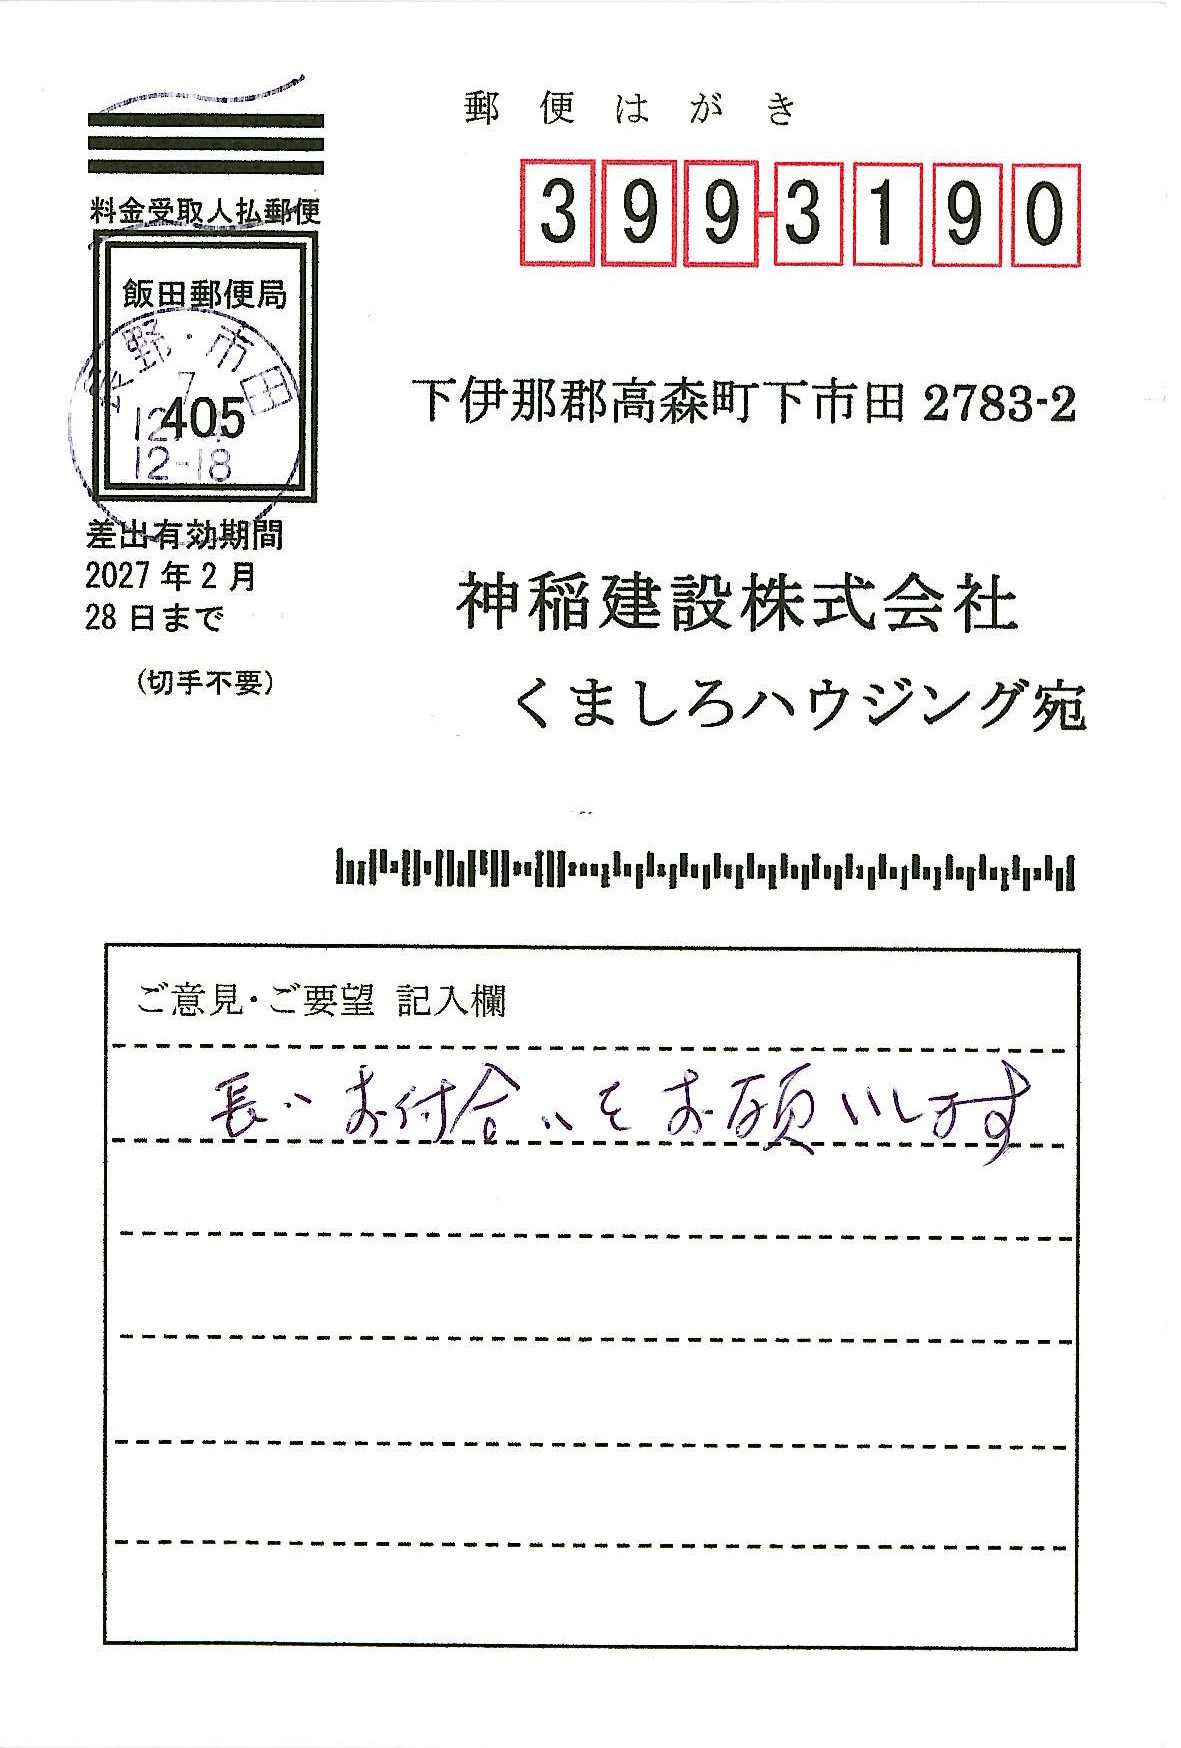 郵便はがき
料金受取人払郵便
399-3190
飯田郵便局
405
長野・市田
7
12-18
差出有効期間
2027年2月
28日まで
(切手不要)
下伊那郡高森町下市田2783-2
神稲建設株式会社
くましろハウジング宛
ご意見・ご要望 記入欄
長いお付合いをお願いします